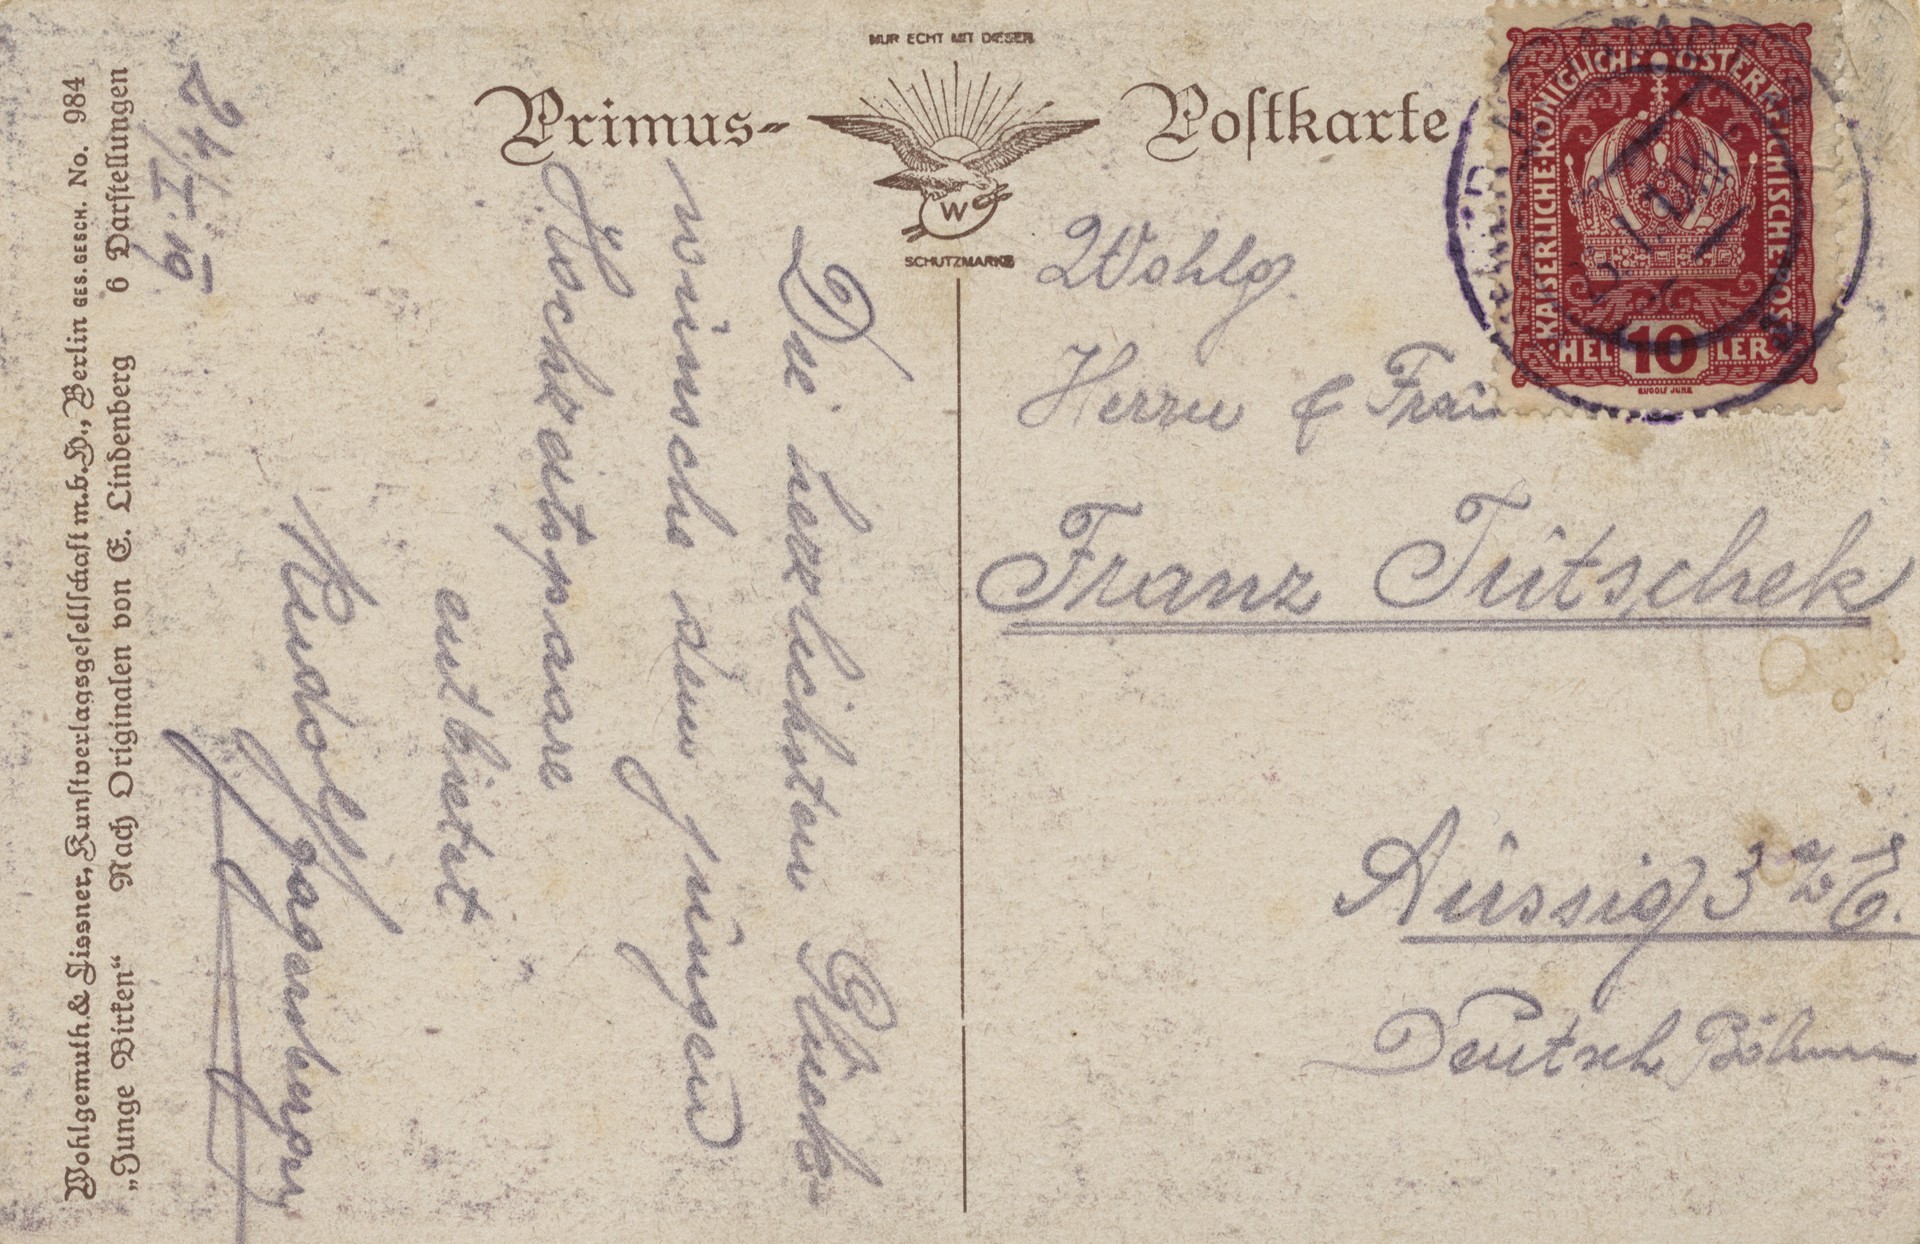 Primus-Postkarte
NUR ECHT MIT DIESER
W
SCHUTZMARKE
KAISERLICHE·KÖNIGLICHE ÖSTERREICHISCHE POST
HELLER
10
RUDOLF JUNK
Wohlg.
Herrn & Frau
Franz Tūtschek
Aūssig
Deutsch Böhmen
24/I. 19
Die herzlichsten Glück-
wünsche dem jungen
Hochzeitspaare
entbietet
Rudolf
Wohlgemuth & Lissner, Kunstverlagsgesellschaft m.b.H., Berlin GES.GESCH. No. 984
„Junge Birken“ Nach Originalen von E. Lindenberg 6 Darstellungen